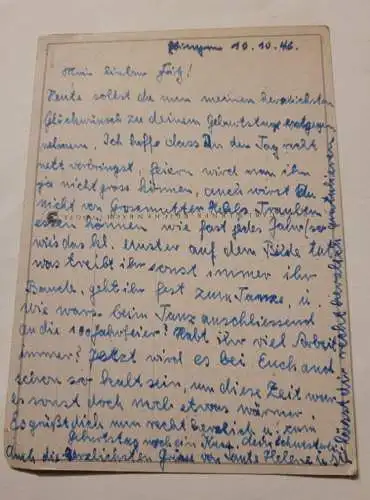 10.10.46.
Mein lieber Fritz!
Heute sollst du nun meinen herzlichsten
Glückwunsch zu deinem Geburtstag entgegen
nehmen. Ich hoffe dass Du den Tag recht
nett verbringst, feiern wird man ihn
ja nicht gross können, auch wirst Du
nicht von Grossmutter Trauben
essen können wie fast jedes Jahr, so
wies das kl. Muster auf dem Bilde tat
was treibt ihr sonst immer ihr
Bande, geht ihr fest zum Tanze, u.
Wie wars beim Tanz anschliessend
an die 100 Jahrfeier? Habt ihr viel Arbeit
immer? Jetzt wird es bei Euch auch
schon so kalt sein, um diese Zeit war
es sonst doch noch etwas wärmer.
Es grüßt dich nun recht herzlich u. zum
Geburtstag noch ein Kuss, dein Schwesterlein
Auch die herzlichsten Grüsse von Tante Helene u.
lassen dir recht herzlich gratulieren